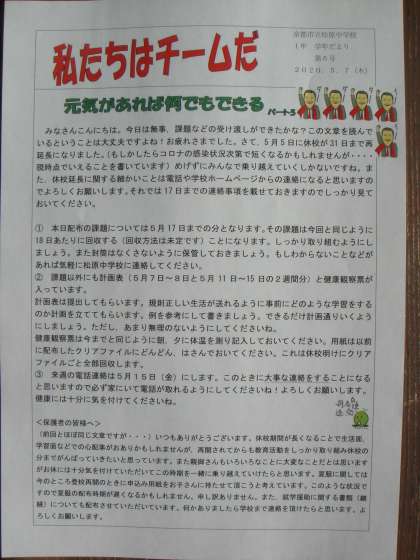 私たちはチームだ
京都市立松原中学校
1年 学年だより
第6号
2020.5.7(木)
元気があれば何でもできる パート5
みなさんこんにちは。今日は無事、課題などの受け渡しができたかな?この文章を読んで
いるということは大丈夫ですよね!お疲れさまでした。さて、5月5日に休校が31日まで再
延長になりました。(もしかしたらコロナの感染状況次第で短くなるかもしれませんが・・・・
現時点でいえることを書いています)めげずにみんなで乗り越えていくしかないですね。ま
た、休校延長に関する細かいことは電話や学校ホームページからの連絡になると思いますの
でよろしくお願いします。それでは17日までの連絡事項を載せておきますのでしっかり見て
おいてください。
① 本日配布の課題については5月17日までの分となります。その課題は今回と同じように
18日あたりに回収する(回収方法は未定です)ことになります。しっかり取り組むようにし
ましょう。また封筒はなくさないように保管しておきましょう。もしわからないことなどが
あれば気軽に松原中学校に連絡してください。
② 課題以外にも計画表(5月7日~8日と5月11日~15日の2週間分)と健康観察票が
入っています。
計画表は提出してもらいます。規則正しい生活が送れるように事前にどのような学習をする
のか計画を立ててもらいます。例を参考にして書きましょう。できるだけ計画通りいくよう
にしましょう。ただし、あまり無理のないようにしてくださいね。
健康観察票は今までと同じように朝、夕に体温を測り記入しておいてください。用紙は以前
に配布したクリアファイルにどんどん、はさんでおいてください。これは休校明けにクリア
ファイルごと全部回収します。
③ 来週の電話連絡は5月15日(金)にします。このときに大事な連絡をすることになる
と思いますので必ず家にいて電話が取れるようにしてくださいね!よろしくお願いします。
健康には十分に気を付けてくださいね。
<保護者の皆様へ>
(前回とほぼ同じ文章ですが・・・)いつもありがとうございます。休校期間が長くなることで生活面、
学習面などでの心配事がおありかもしれませんが、再開されてからも教育活動をしっかり取り組み休校の
分までがんばっていきたいと思っています。また親御さんもいろいろなことに大変なことだとは思います
がお体には十分気を付けていただいてこの時期を一緒に乗り越えていけたらと思います。夏服に関しては
今のところ登校再開のときに申込み用紙をお子さんに持たせて頂こうと考えています。このような状況で
すので夏服の配布時期が遅くなるかもしれません、申し訳ありません。また、就学援助に関する書類(継
続)についても配布させていただいています。何かありましたら学校まで連絡を頂けたらと思います。よ
ろしくお願いします。